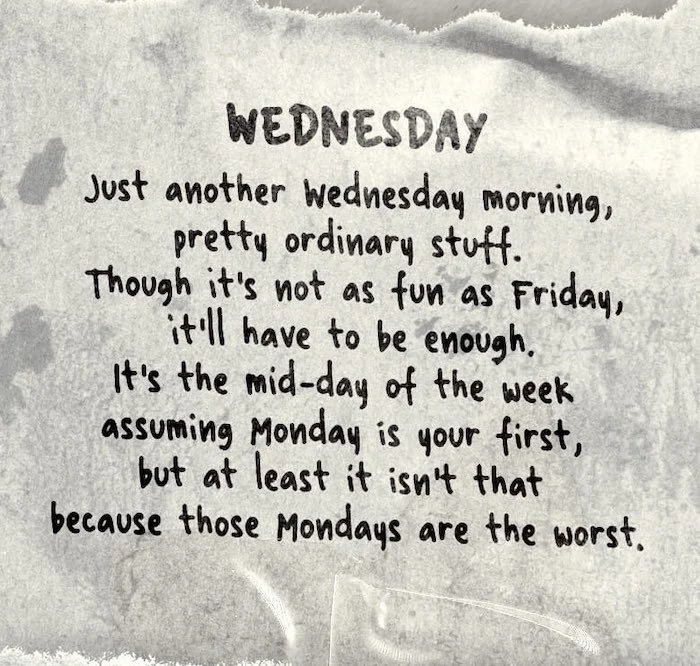 WEDNESDAY
Just another Wednesday morning,
pretty ordinary stuff.
Though it's not as fun as Friday,
it'll have to be enough.
It's the mid-day of the week
assuming Monday is your first,
but at least it isn't that
because those Mondays are the worst.